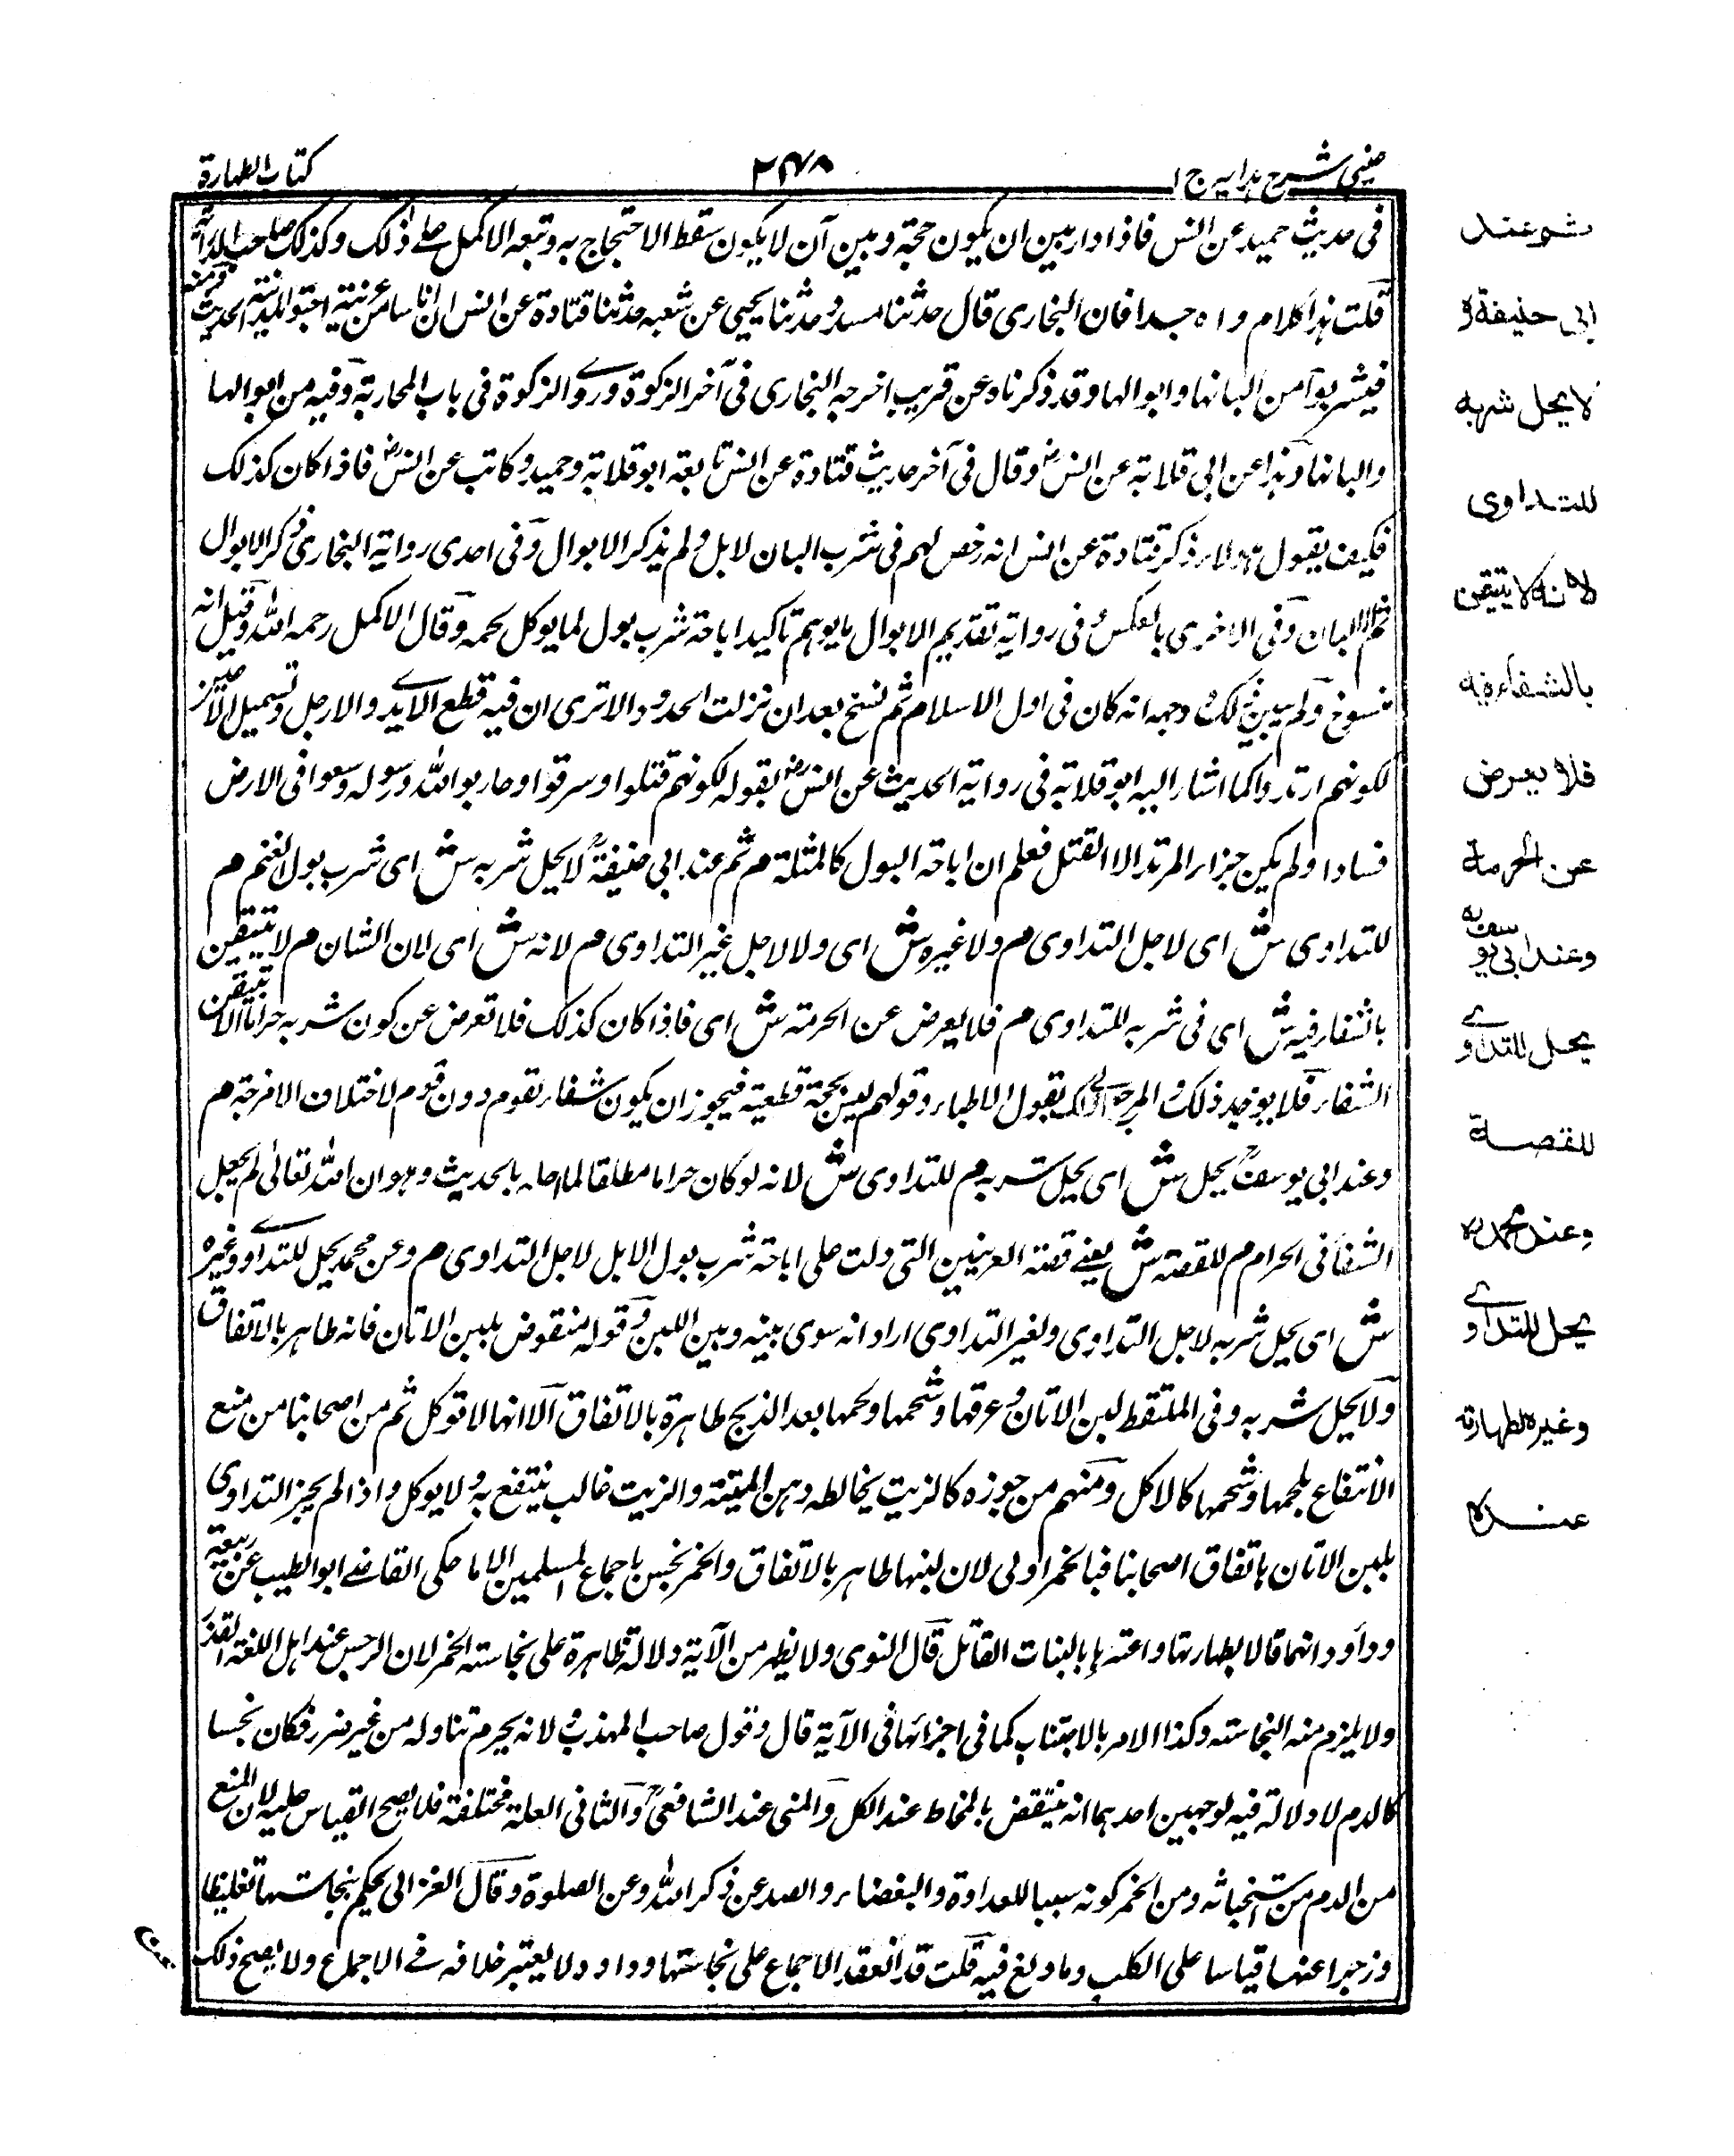 عینی شرح ہدایہ ج ۱
۲۴۸
کتاب الطہارۃ
فی حدیث حمید عن انس فاذا دار بین ان یکون حجۃ و بین آن لا یکون سقط الاحتجاج بہ وتبعہ الاکمل علے ذلک وکذلک صاحب الدرایۃ
قلت ہذا کلام واہ جدا فان البخاری قال حدثنا مسدد حدثنا یحیی عن شعبہ حدثنا قتادۃ عن انس ان ناسا من عرینۃ اجتووا المدینۃ الحدیث
فیشربوا من البانہا وابوالہا وقد ذکرناہ عن قریب اخرجہ البخاری فی آخر الزکوۃ وروے الزکوۃ فی باب المحاربۃ وفیہ من ابوالہا
والبانہا وہذا عن ابی قلابۃ عن انس رض وقال فی آخر حدیث قتادۃ عن انس تابعہ ابو قلابۃ وحمید وکاتب عن انس رض فاذا کان کذلک
فکیف یقول ہولاء ذکر قتادۃ عن انس انہ رخص لہم فی شرب البان لابل ولم یذکر الابوال وفی احدی روایۃ البخاری ذکر الابوال
ثم الالبان وفی الاخری بالعکس فی روایۃ تقدیم الابوال ما یوہم تاکید اباحۃ شرب بول لما یوکل لحمہ وقال الاکمل رحمہ اللہ وقیل انہ
منسوخ ولم یبین ذلک وجہہ انہ کان فی اول الاسلام ثم نسخ بعد ان نزلت الحدود الا تری ان فیہ قطع الایدے والارجل وتسمیل الاعین
لکونہم ارتدوا کما اشار الیہ ابو قلابۃ فی روایۃ الحدیث عن انس رض بقولہ لکونہم قتلوا وسرقوا وحاربوا اللہ ورسولہ وسعوا فی الارض
فسادا ولم یکن جزاء المرتد الا القتل فعلم ان اباحۃ البول کالمثلۃ م ثم عند ابی حنیفۃ رح لا یحل شربہ ش ای شرب بول الغنم م
للتداوی ش ای لاجل التداوی م ولا غیرہ ش ای ولا لاجل غیر التداوی م لانہ ش ای لان الشان م لا یتیقن
بالشفاء فیہ ش ای فی شربہ للتداوی م فلا یعرض عن الحرمۃ ش ای فاذا کان کذلک فلا تعرض عن کون شربہ حراما الا ان تیقن
الشفاء فلا یوجد ذلک والمرجع الی ذلک بقول الاطباء وقولہم لیس بحجۃ قطعیۃ فیجوز ان یکون شفاء لقوم دون قوم لاختلاف الامزجۃ م
وعند ابی یوسف رح یحل ش ای یحل شربہ م للتداوی ش لانہ لو کان حراما مطلقا لما احلہ بالحدیث وہو ان اللہ تعالی لم یجعل
الشفا فی الحرام م للقصۃ ش یعنے قصۃ العرینین التی دلت علی اباحۃ شرب بول الابل لاجل التداوی م وعن محمد یحل للتداوے وغیرہ
ش ای یحل شربہ لاجل التداوی ولغیر التداوی اراد انہ سوی بینہ وبین اللبن وقولہ منقوض بلبن الاتان فانہ طاہر بالاتفاق
ولا یحل شربہ وفی الملتقط لبن الاتان وعرقہا وشحمہا ولحمہا بعد الذبح طاہرۃ بالاتفاق الا انہا لا توکل ثم من اصحابنا من منع
الانتفاع بلحمہا وشحمہا کالاکل ومنہم من جوزہ کالزیت یخالطہ دہن المیتۃ والزیت غالب ینتفع بہ ولا یوکل واذا لم یجز التداوی
بلبن الاتان باتفاق اصحابنا فبالخمر اولی لان لبنہا طاہر بالاتفاق والخمر نجس باجماع المسلمین الا ما حکی القاضے ابو الطیب عن ربیعۃ
وداؤد انہما قالا بطہارتہا واعتبراہا بالبنات القاتل قال النووی ولا یظہر من الآیۃ دلالۃ ظاہرۃ علی نجاستہ الخمر لان الرجس عند اہل اللغۃ القذر
ولا یلزم منہ النجاستہ وکذا الامر بالاجتناب کما فی اجزائہا فی الآیۃ قال وقول صاحب المہذب لانہ یحرم تناولہ من غیر ضرر فکان نجسا
کالدم لا دلالۃ فیہ لوجہین احدہما انہ ینتقض بالمخاط عند الکل والمنی عند الشافعی رح والثانی العلۃ مختلفۃ فلا یصح القیاس علیہ لان المنع
من الدم من استخباثہ ومن الخمر کونہ سببا للعداوۃ والبغضاء والصد عن ذکر اللہ وعن الصلوۃ وقال الغزالی یحکم بنجاستہا تغلیظا
وزجرا عنہا قیاسا علی الکلب وما ولغ فیہ قلت قد انعقد الاجماع علی نجاستہا وداود لا یعتبر خلافہ فے الاجماع ولا یصح ذلک
شم عند
ابی حنیفۃ رہ
لا یحل شربہ
للتداوی
لانہ لا یتیقن
بالشفاء فیہ
فلا یعرض
عن الحرمۃ
وعند ابی یوسف رہ
یحل للتداوے
للقصۃ
وعند محمد رہ
یحل للتداوے
وغیرہ لطہارتہ
عندہ